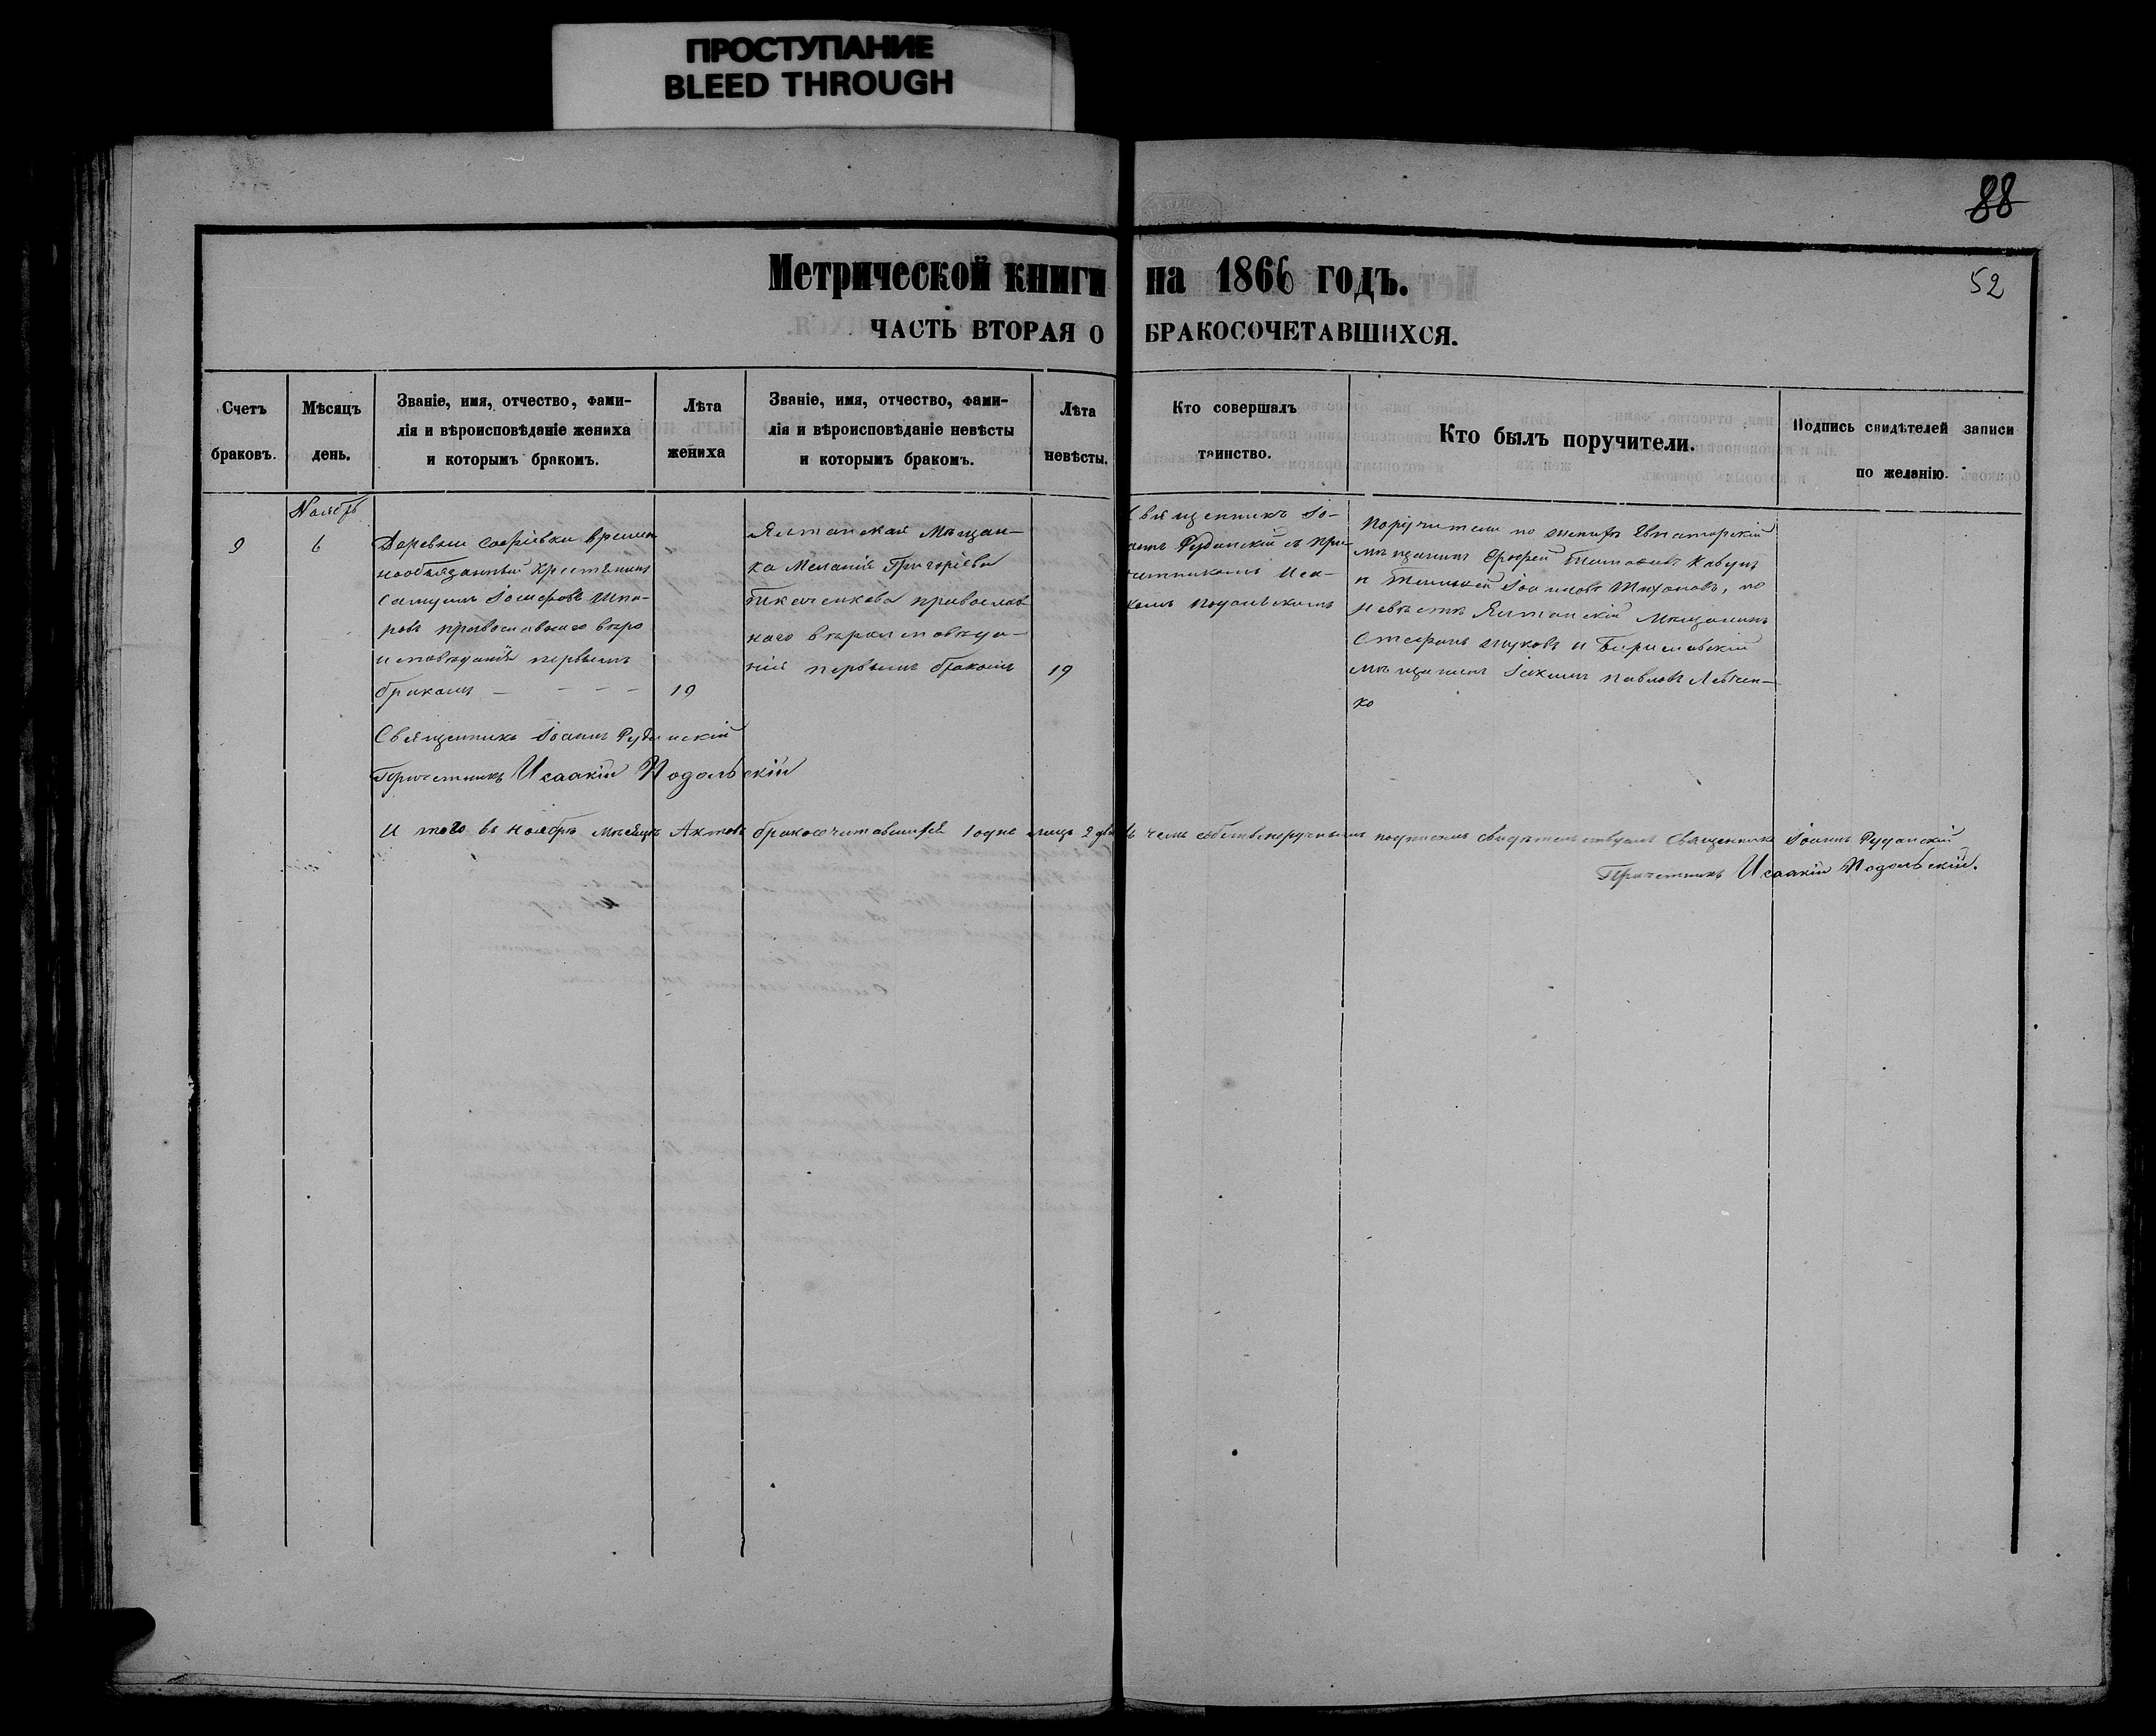 ПРОСТУПАНИЕ
BLEED THROUGH
88
52
Метрической книги на 1866 годъ.
ЧАСТЬ ВТОРАЯ О БРАКОСОЧЕТАВШИХСЯ.
Счетъ
браковъ.
Мѣсяцъ
день.
Званіе, имя, отчество, фами-
лія и вѣроисповѣданіе жениха
и которымъ бракомъ.
Лѣта
жениха
Званіе, имя, отчество, фами-
лія и вѣроисповѣданіе невѣсты
и которымъ бракомъ.
Лѣта
невѣсты.
Кто совершалъ
таинство.
Кто былъ поручители.
Подпись свидѣтелей записи
по желанію.
Ноябрь
9
6
Деревни Софіевки времен
нообязанный Крестьянинъ
Самуилъ Іосифовъ
православнаго вѣро
исповѣданія первымъ
бракомъ
19
Ялтанская Мѣщан-
ка Меланія Григоріева
Ткаченкова православ
наго вѣроисповѣда-
нія первымъ бракомъ
19
Священникъ Іо-
аннъ Руданскій съ при
четникомъ Исаа-
комъ Подольскимъ
Поручители по женихѣ Евпаторскій
мѣщанинъ Ерофей Кавунъ
и Іоанновъ Тихоновъ, по
невѣстѣ Ялтанскій Мѣщанинъ
Стефанъ и Бериславскій
мѣщанинъ Іакимъ Павловъ Левчен-
ко
Священникъ Іоаннъ Руданскій
Причетникъ Исаакій Подольскій
И того въ Ноябрѣ Мѣсяцѣ Актовъ бракосочетавшихся 1 одно лицъ 2 два въ чемъ собственоручнымъ подписомъ свидѣтельствуемъ Священникъ Іоаннъ Руданскій
Причетникъ Исаакій Подольскій.